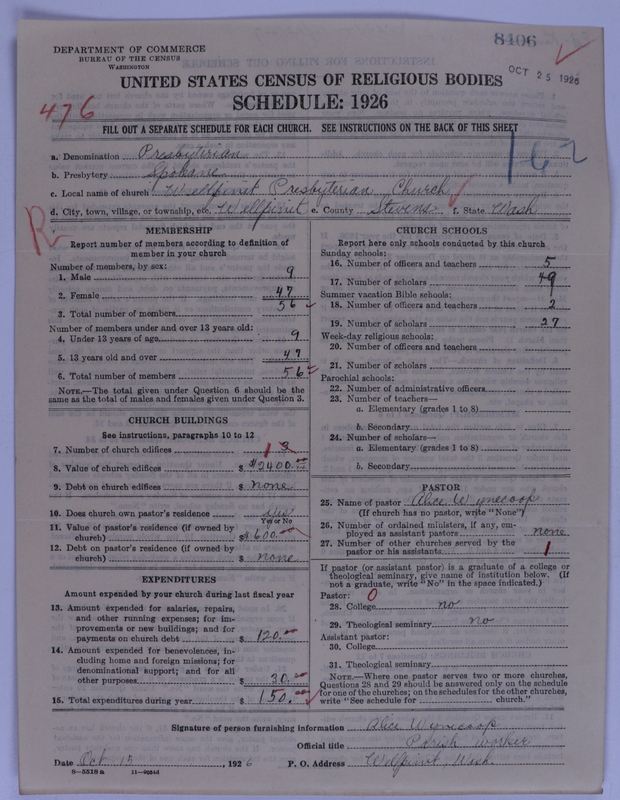 8406
DEPARTMENT OF COMMERCE
BUREAU OF THE CENSUS
WASHINGTON
OCT 25 1926
UNITED STATES CENSUS OF RELIGIOUS BODIES
476
SCHEDULE: 1926
FILL OUT A SEPARATE SCHEDULE FOR EACH CHURCH. SEE INSTRUCTIONS ON THE BACK OF THIS SHEET
162
a. Denomination Presbyterian
b. Presbytery Spokane
c. Local name of church Wellpinit Presbyterian Church
d. City, town, village, or township, etc. Wellpinit e. County Stevens f. State Wash
R
MEMBERSHIP
Report number of members according to definition of
member in your church
Number of members, by sex:
1. Male 9
2. Female 47
3. Total number of members 56
Number of members under and over 13 years old:
4. Under 13 years of age 9
5. 13 years old and over 47
6. Total number of members 56
NOTE.—The total given under Question 6 should be the
same as the total of males and females given under Question 3.
CHURCH BUILDINGS
See instructions, paragraphs 10 to 12
7. Number of church edifices 1 3
8. Value of church edifices $ $2400.00
9. Debt on church edifices $ none
10. Does church own pastor's residence yes
Yes or No
11. Value of pastor's residence (if owned by
church) $ $600.00
12. Debt on pastor's residence (if owned by
church) $ none
EXPENDITURES
Amount expended by your church during last fiscal year
13. Amount expended for salaries, repairs,
and other running expenses; for im-
provements or new buildings; and for
payments on church debt $ 120.00
14. Amount expended for benevolences, in-
cluding home and foreign missions; for
denominational support; and for all
other purposes $ 30.00
15. Total expenditures during year $ 150.00
CHURCH SCHOOLS
Report here only schools conducted by this church
Sunday schools:
16. Number of officers and teachers 5
17. Number of scholars 49
Summer vacation Bible schools:
18. Number of officers and teachers 2
19. Number of scholars 27
Week-day religious schools:
20. Number of officers and teachers
21. Number of scholars
Parochial schools:
22. Number of administrative officers
23. Number of teachers—
a. Elementary (grades 1 to 8)
b. Secondary
24. Number of scholars—
a. Elementary (grades 1 to 8)
b. Secondary
PASTOR
25. Name of pastor Alice Wynecoop
(If church has no pastor, write "None")
26. Number of ordained ministers, if any, em-
ployed as assistant pastors none
27. Number of other churches served by the
pastor or his assistants 1
If pastor (or assistant pastor) is a graduate of a college or
theological seminary, give name of institution below. (If
not a graduate, write "No" in the space indicated.)
Pastor: 0
28. College no
29. Theological seminary no
Assistant pastor:
30. College
31. Theological seminary
NOTE.—Where one pastor serves two or more churches,
Questions 28 and 29 should be answered only on the schedule
for one of the churches; on the schedules for the other churches,
write "See schedule for church."
Signature of person furnishing information Alice Wynecoop
Official title Parish worker
Date Oct 15, 1926 P. O. Address Wellpinit, Wash.
8—5518 a